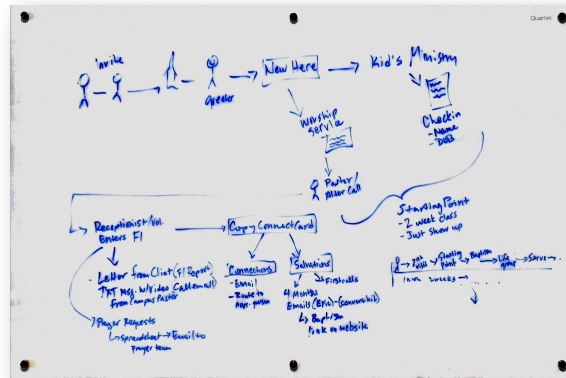 Quartet
invite
greeter
New Here
Kid's Ministry
Worship
Service
Checkin
- Name
- DOB
Pastor/
Alter Call
Starting Point
- 2 week class
- Just show up
Receptionist/Vol.
Enters F1
Copy Connect Card
- Letter from Clint (F1 Report)
TXT Msg. w/video
from Campus Pastor
Prayer Requests
↳ spreadsheet → Email to
prayer team
Connections
- Email
- Route to
Appr. person
Salvations
First calls
4 Months
Emails (Epic)
↳ Baptism
link on website
2nd visit → Starting point → Baptism → Life group → Serve → ..
weeks → . . . .